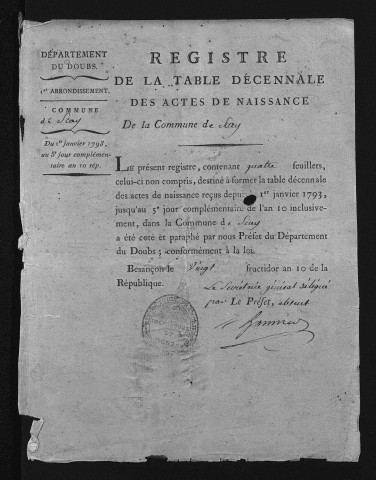 DÉPARTEMENT
DU DOUBS.
1er ARRONDISSEMENT.
COMMUNE
de Scey
Du 1er Janvier 1793,
au 5e jour complémen-
taire an 10 rép.
REGISTRE
DE LA TABLE DÉCENNALE
DES ACTES DE NAISSANCE
De la Commune de Scey
LE présent registre, contenant quatre feuillets,
celui-ci non compris, destiné à former la table décennale
des actes de naissance reçus depuis 1er janvier 1793,
jusqu'au 5e jour complémentaire de l'an 10 inclusive-
ment, dans la Commune de Scey
a été coté et paraphé par nous Préfet du Département
du Doubs; conformément à la loi.
Besançon le Vingt fructidor an 10 de la
République.
Le Secrétaire général délégué
par Le Préfet, absent